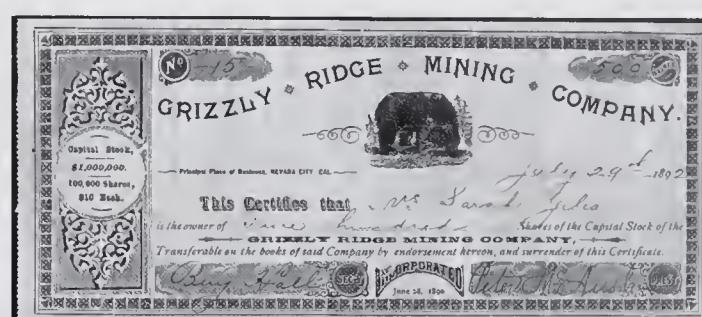 No 15 500 Shares
GRIZZLY RIDGE MINING COMPANY.
Capital Stock,
$1,000,000.
100,000 Shares,
$10 Each.
Principal Place of Business, NEVADA CITY CAL.
July 29th 1892
This Certifies that Mrs Sarah
is the owner of hundred Shares of the Capital Stock of the
GRIZZLY RIDGE MINING COMPANY,
Transferable on the books of said Company by endorsement hereon, and surrender of this Certificate.
Benj Hall SEC'Y INCORPORATED Peter PRES.
June 28, 1890